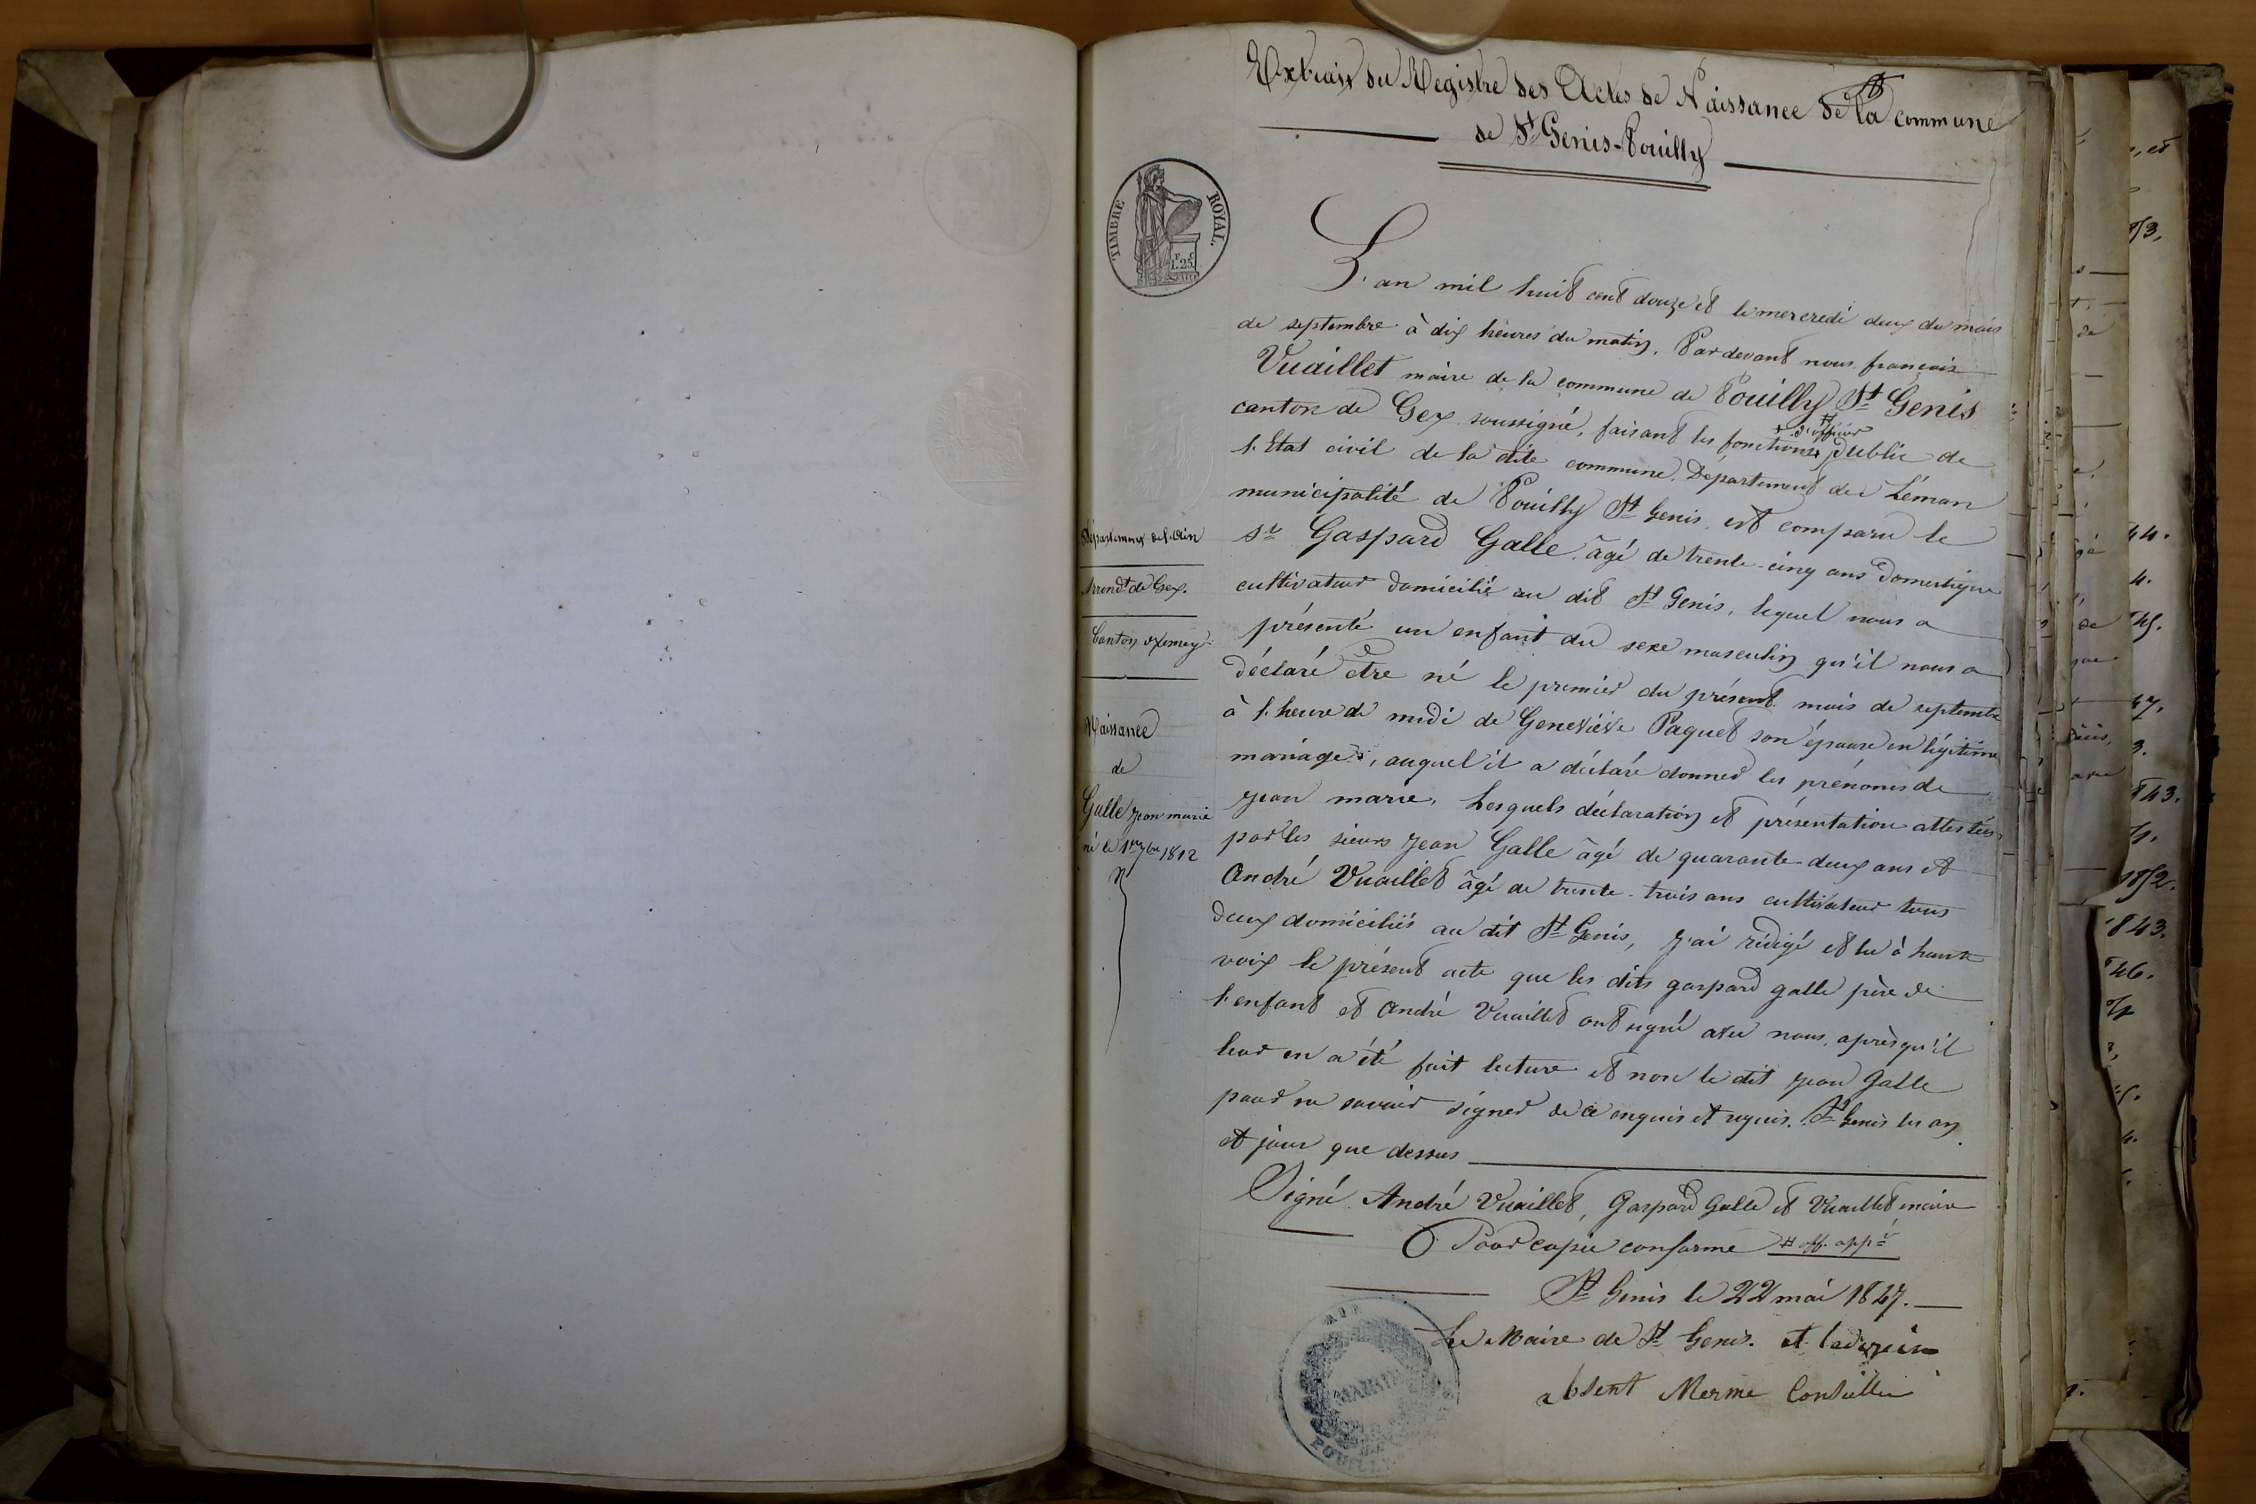 Extrait du Registre des Actes de Naissance de la commune
de St Genis-Pouilly
TIMBRE ROYAL.
1.F 25.c
L'an mil huit cent douze et le mercredi deux du mois
de septembre à dix heures du matin, Pardevant nous françois
Vuaillet maire de la commune de Pouilly St Genis
canton de Gex soussigné, faisant les fonctions d'officier public de
l'Etat civil de la dite commune, Département du Léman
municipalité de Pouilly St Genis, est comparu le
Sr Gaspard Galle âgé de trente-cinq ans domestique
cultivateur domicilié au dit St Genis, lequel nous a
présenté un enfant du sexe masculin qu'il nous a
déclaré être né le premier du présent mois de septembre
à l'heure de midi de Geneviève Paquet son épouse en légitime
mariage, auquel il a déclaré donner les prénoms de
jean marie, Lesquels déclaration et présentation attestées
par les sieurs Jean Galle âgé de quarante-deux ans et
André Vuaillet âgé de trente-trois ans cultivateur tous
deux domiciliés au dit St Genis, J'ai rédigé et lu à haute
voix le présent acte que les dits gaspard galle père de
l'enfant et André Vuaillet ont signé avec nous, après qu'il
leur en a été fait lecture et non le dit jean Galle
pour ne savoir signer de ce enquis et requis. St Genis les an
et jour que dessus
Signé André Vuaillet, Gaspard Galle et Vuaillet maire
Pour copie conforme # off. app.é
St Genis le 22 mai 1847.
Le Maire de St Genis. et l'adjoin
absent Merme Conseiller
MAIRIE
POUILLY
Département de l'Ain
Arrondt de Gex.
Canton de ferney
Naissance
de
Galle jean marie
né le 1er 7bre 1812